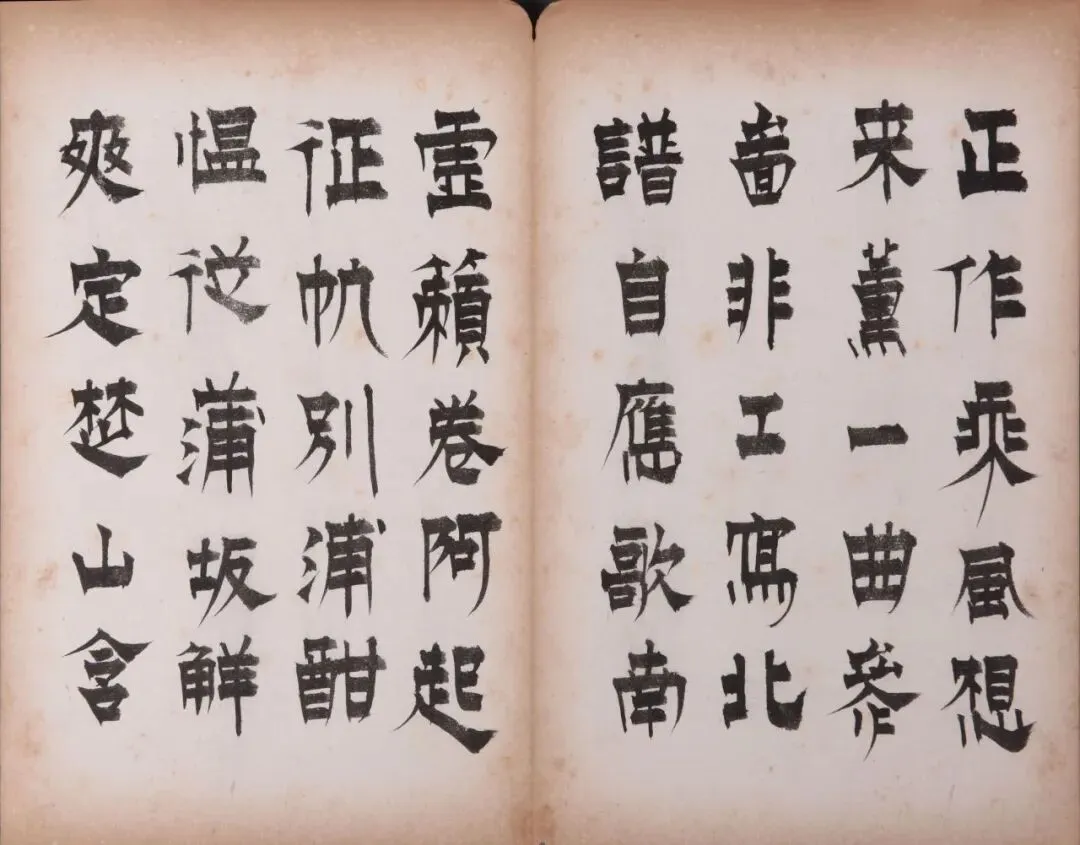 正作乘風想
来薰一曲參
啚非工寫北
譜自應歌南
靈籟卷阿起
征帆別浦酣
愠從蒲坂解
爽定楚山含